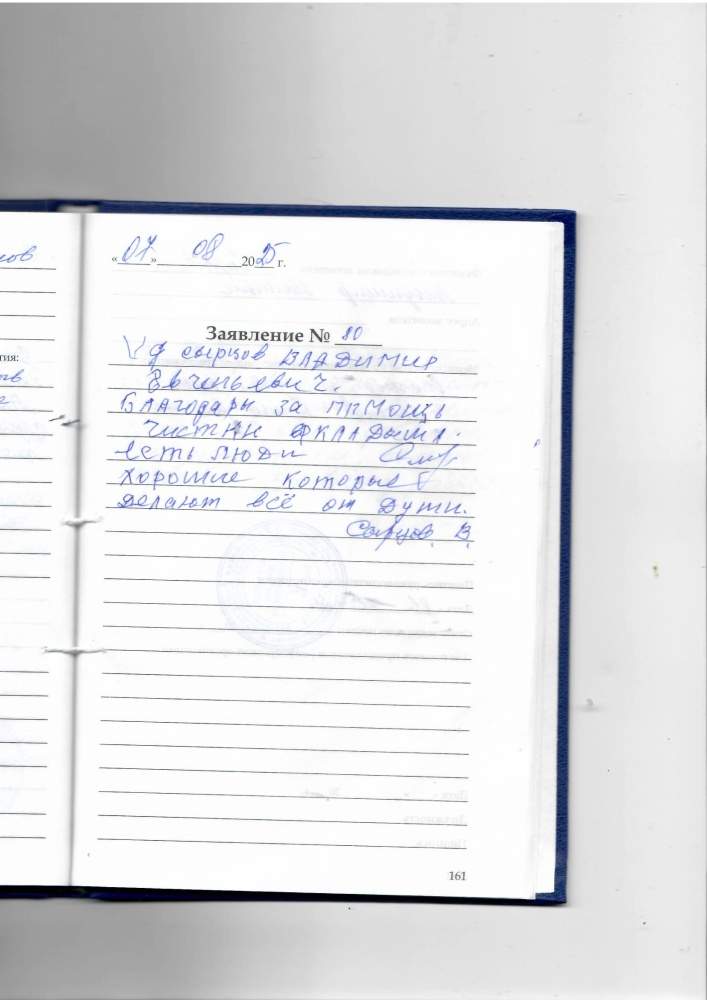 нов
тия:
«07» 08 2025 г.
Заявление № 80
Я Сырцов Владимир
Евгеньевич.
Благодарю за ппмощь
чистки
есть люди
хорошие которые
делают всё от души.
Сырцов В
161